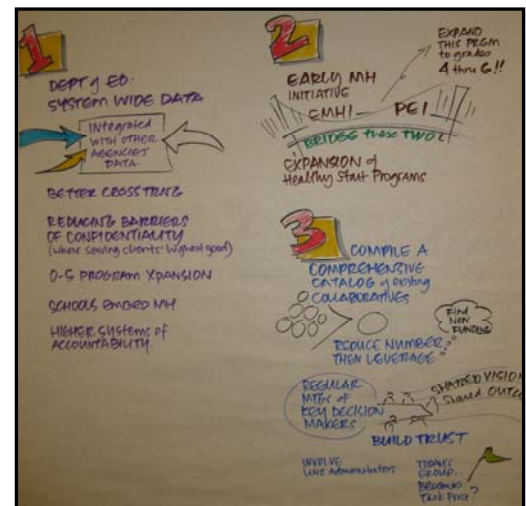 1
DEPT of ED:
SYSTEM WIDE DATA
INtegrated
WITH OTHER
AGENCIES'
DATA
BETTER CROSS TRNG
REDUCING BARRIERS
OF CONFIDENTIALITY
(where serving clients' highest good)
0-5 PROGRAM XPANSION
SCHOOLS EMBED MH
HIGHER SYSTEMS of
ACCOUNTABILITY.
2
EXPAND
THIS PRGM
to grades
4 thru 6!!
EARLY MH
INITIATIVE
EMHI — PEI
BRIDGE these TWO
EXPANSION of
Healthy Start Programs
3
COMPILE A
COMPREHENSIVE
CATALOG of existing
COLLABORATIVES
Find
NEW
FUNDING
REDUCE NUMBER
THEN LEVERAGE
REGULAR
MTGS of
KEY DECISION
MAKERS
SHARED VISION
Shared
BUILD TRUST
INVOLVE
LINE Administrators
TODAY'S
GROUP...
BECOMES
TASK FORCE?